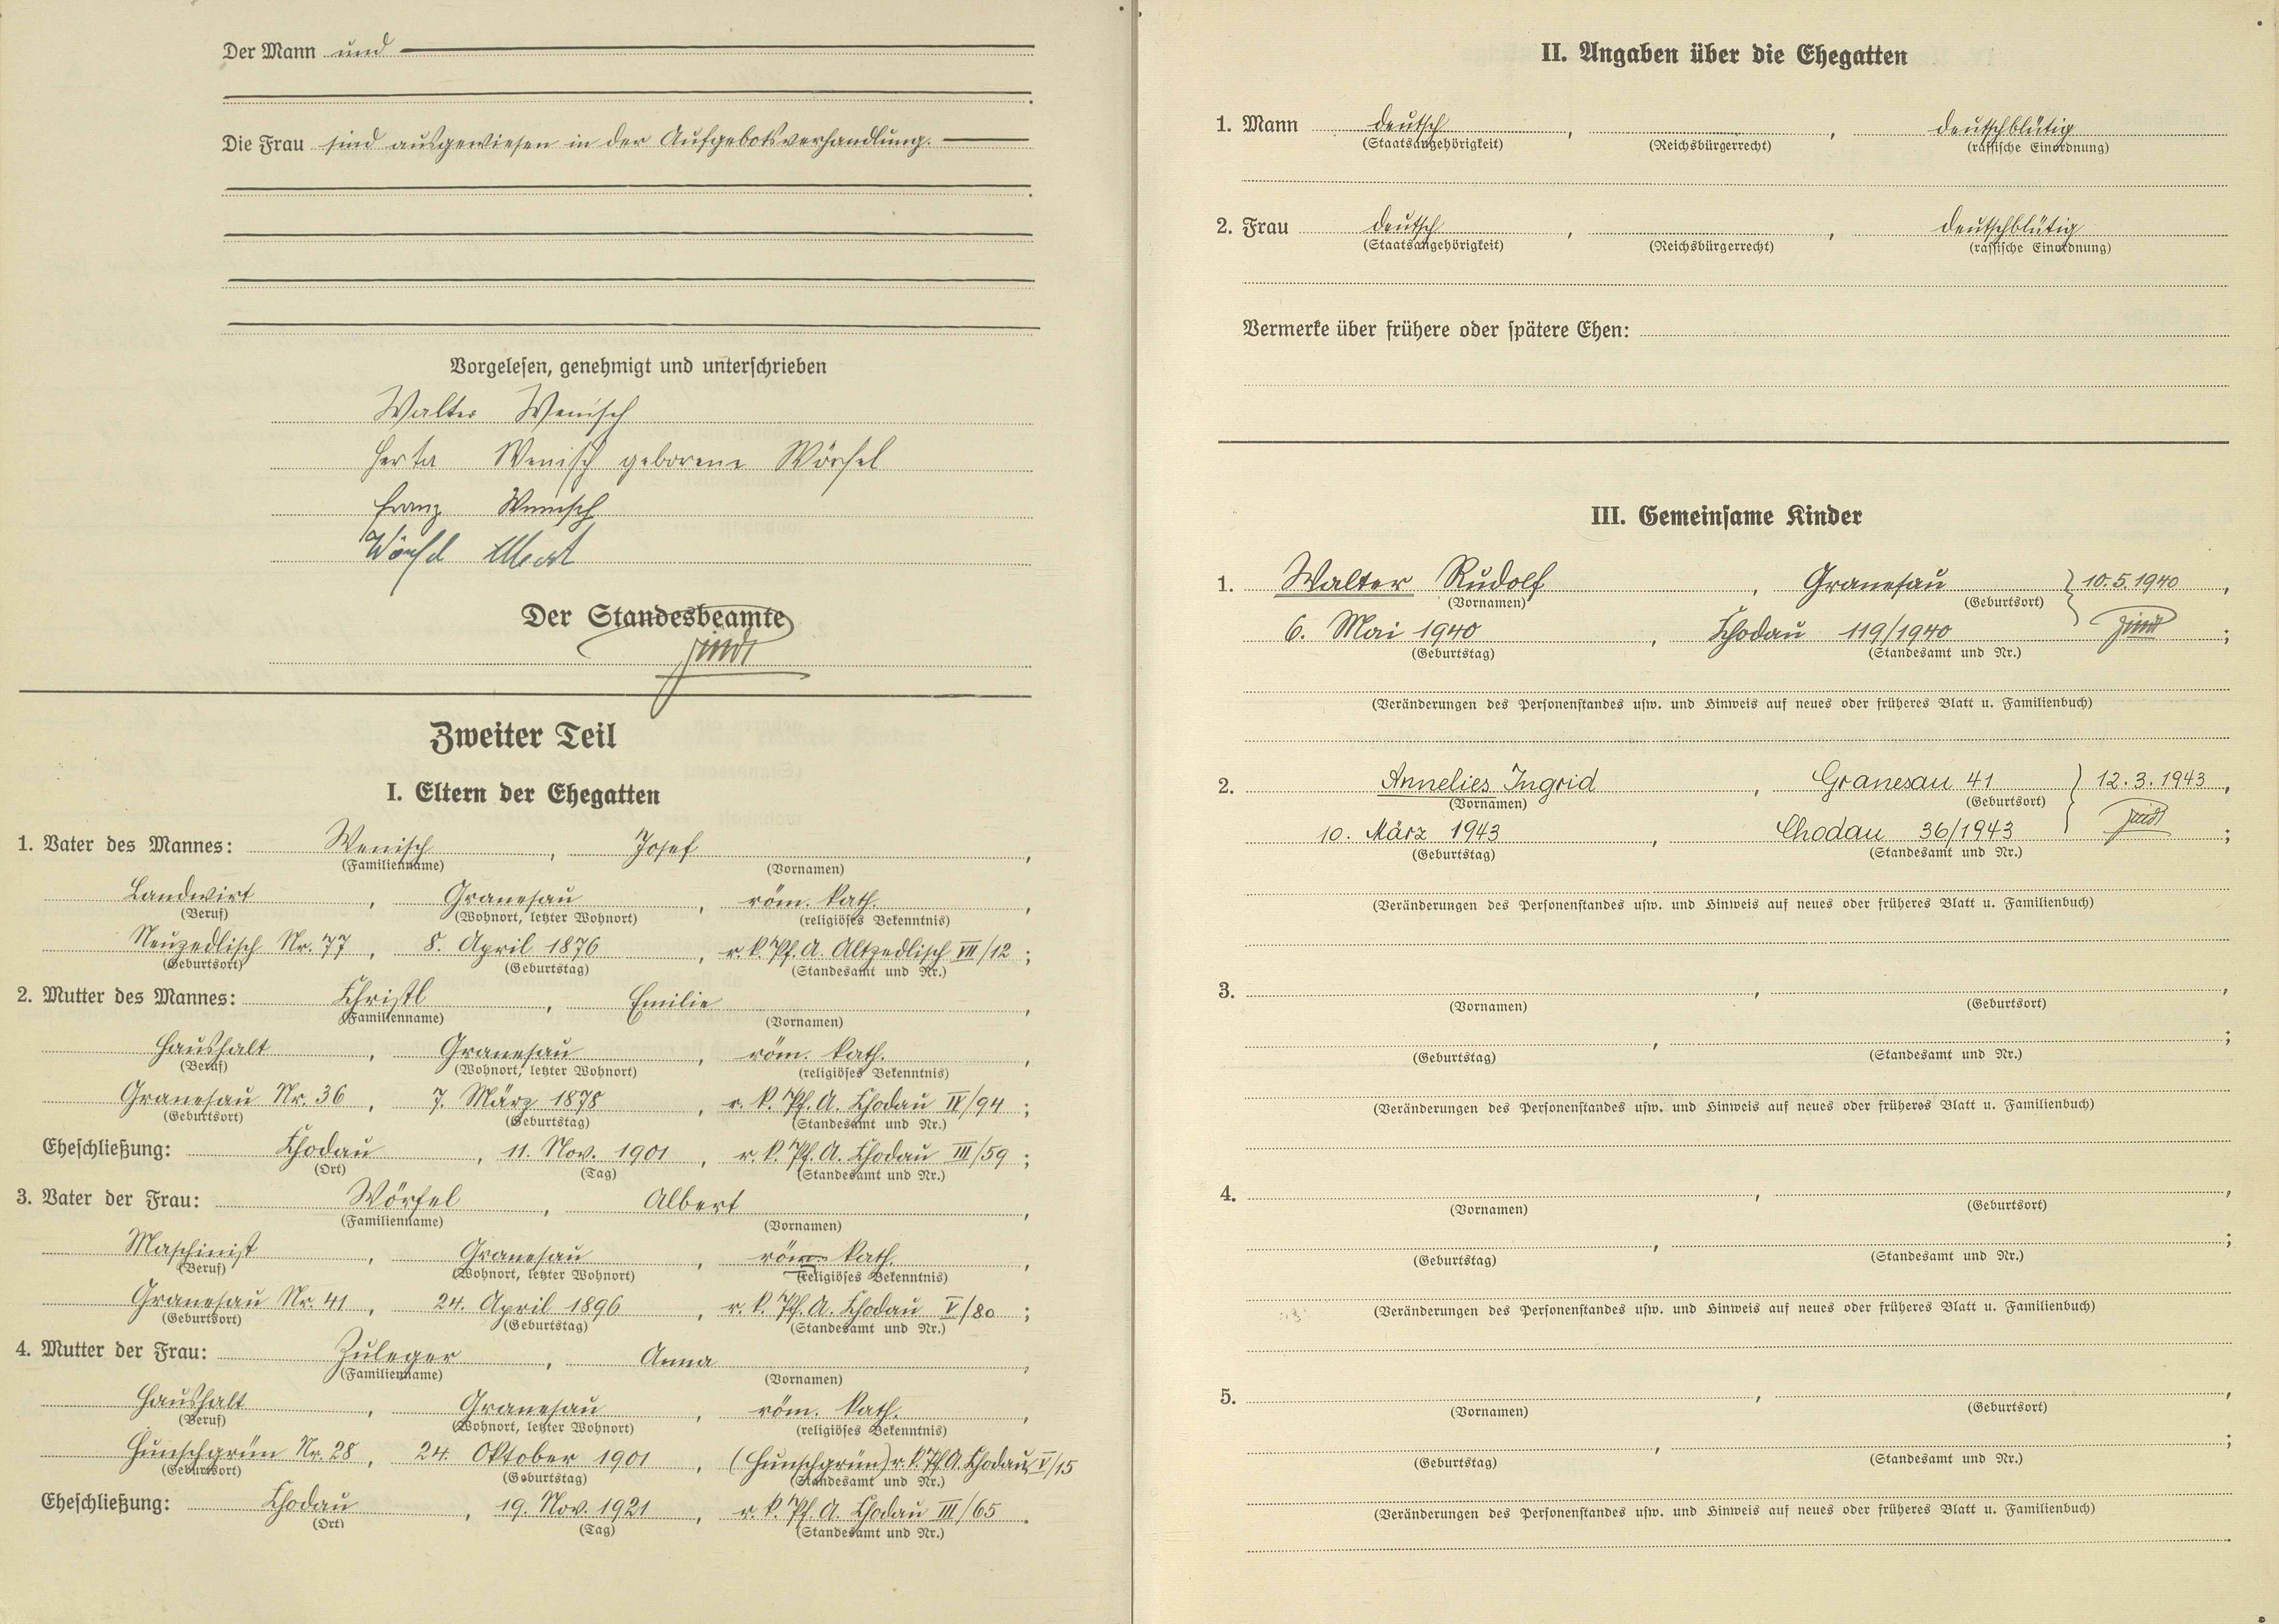 Der Mann und
Die Frau sind ausgewiesen in der Aufgebotsverhandlung.
Vorgelesen, genehmigt und unterschrieben
Walter Wenisch
Herta Wenisch geborene Wörfel
Franz Wenisch
Wörfel Albert
Der Standesbeamte
Zweiter Teil
I. Eltern der Ehegatten
1. Vater des Mannes: Wenisch, Josef,
(Familienname) (Vornamen)
Landwirt, Granesau, röm. kath.,
(Beruf) (Wohnort, letzter Wohnort) (religiöses Bekenntnis)
Neuzedlisch Nr. 77, 8. April 1876, r. k. Pf. A. Altzedlisch VII/12;
(Geburtsort) (Geburtstag) (Standesamt und Nr.)
2. Mutter des Mannes: Christl, Emilie,
(Familienname) (Vornamen)
Haushalt, Granesau, röm. kath.,
(Beruf) (Wohnort, letzter Wohnort) (religiöses Bekenntnis)
Granesau Nr. 36, 7. März 1878, r. k. Pf. A. Chodau IV/94;
(Geburtsort) (Geburtstag) (Standesamt und Nr.)
Eheschließung: Chodau, 11. Nov. 1901, r. k. Pf. A. Chodau III/59;
(Ort) (Tag) (Standesamt und Nr.)
3. Vater der Frau: Wörfel, Albert,
(Familienname) (Vornamen)
Maschinist, Granesau, röm. kath.,
(Beruf) (Wohnort, letzter Wohnort) (religiöses Bekenntnis)
Granesau Nr. 41, 24. April 1896, r. k. Pf. A. Chodau V/80;
(Geburtsort) (Geburtstag) (Standesamt und Nr.)
4. Mutter der Frau: Zuleger, Anna,
(Familienname) (Vornamen)
Haushalt, Granesau, röm. kath.,
(Beruf) (Wohnort, letzter Wohnort) (religiöses Bekenntnis)
Hunschgrün Nr. 28, 24. Oktober 1901, (Hunschgrün) r. k. Pf. A. Chodau V/15
(Geburtsort) (Geburtstag) (Standesamt und Nr.)
Eheschließung: Chodau, 19. Nov. 1921, r. k. Pf. A. Chodau III/65.
(Ort) (Tag) (Standesamt und Nr.)
II. Angaben über die Ehegatten
1. Mann deutsch, , deutschblütig
(Staatsangehörigkeit) (Reichsbürgerrecht) (rassische Einordnung)
2. Frau deutsch, , deutschblütig
(Staatsangehörigkeit) (Reichsbürgerrecht) (rassische Einordnung)
Vermerke über frühere oder spätere Ehen:
III. Gemeinsame Kinder
1. Walter Rudolf, Granesau } 10.5.1940,
(Vornamen) (Geburtsort)
6. Mai 1940, Chodau 119/1940;
(Geburtstag) (Standesamt und Nr.)
(Veränderungen des Personenstandes usw. und Hinweis auf neues oder früheres Blatt u. Familienbuch)
2. Annelies Ingrid, Granesau 41 } 12.3.1943,
(Vornamen) (Geburtsort)
10. März 1943, Chodau 36/1943;
(Geburtstag) (Standesamt und Nr.)
(Veränderungen des Personenstandes usw. und Hinweis auf neues oder früheres Blatt u. Familienbuch)
3. , ,
(Vornamen) (Geburtsort)
, ;
(Geburtstag) (Standesamt und Nr.)
(Veränderungen des Personenstandes usw. und Hinweis auf neues oder früheres Blatt u. Familienbuch)
4. , ,
(Vornamen) (Geburtsort)
, ;
(Geburtstag) (Standesamt und Nr.)
(Veränderungen des Personenstandes usw. und Hinweis auf neues oder früheres Blatt u. Familienbuch)
5. , ,
(Vornamen) (Geburtsort)
, ;
(Geburtstag) (Standesamt und Nr.)
(Veränderungen des Personenstandes usw. und Hinweis auf neues oder früheres Blatt u. Familienbuch)